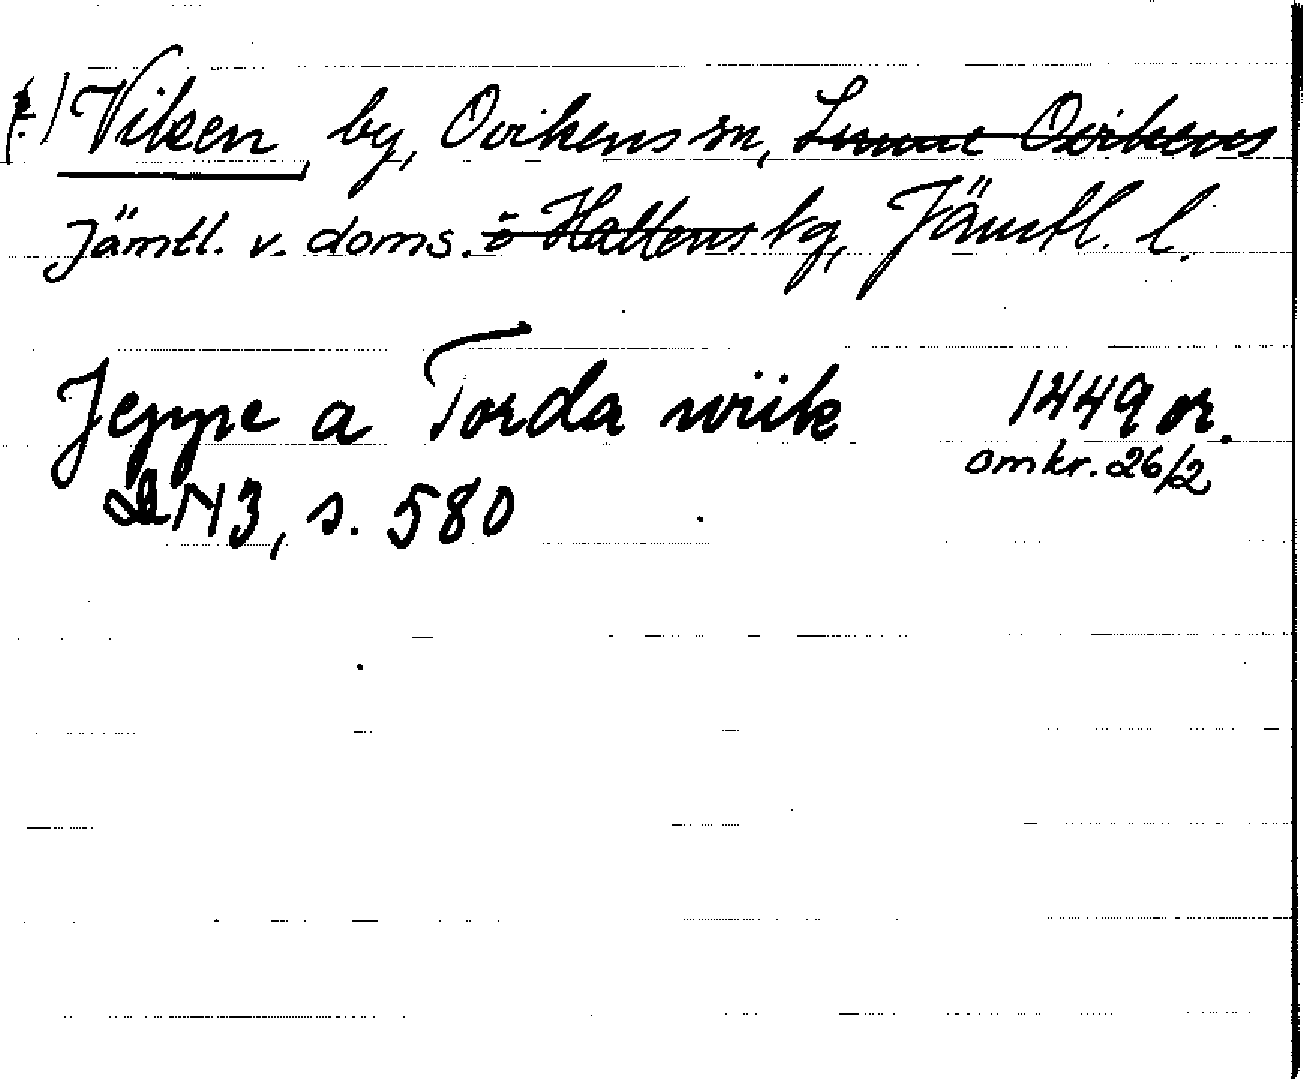 Viken, by, Ovikens sn, Sunne Ovikens
Jämtl. v. doms. o Hallens tg, Jämtl. l.
Jeppe a Torda wiik 1449 or.
omkr. 26/2
DN 3, s. 580